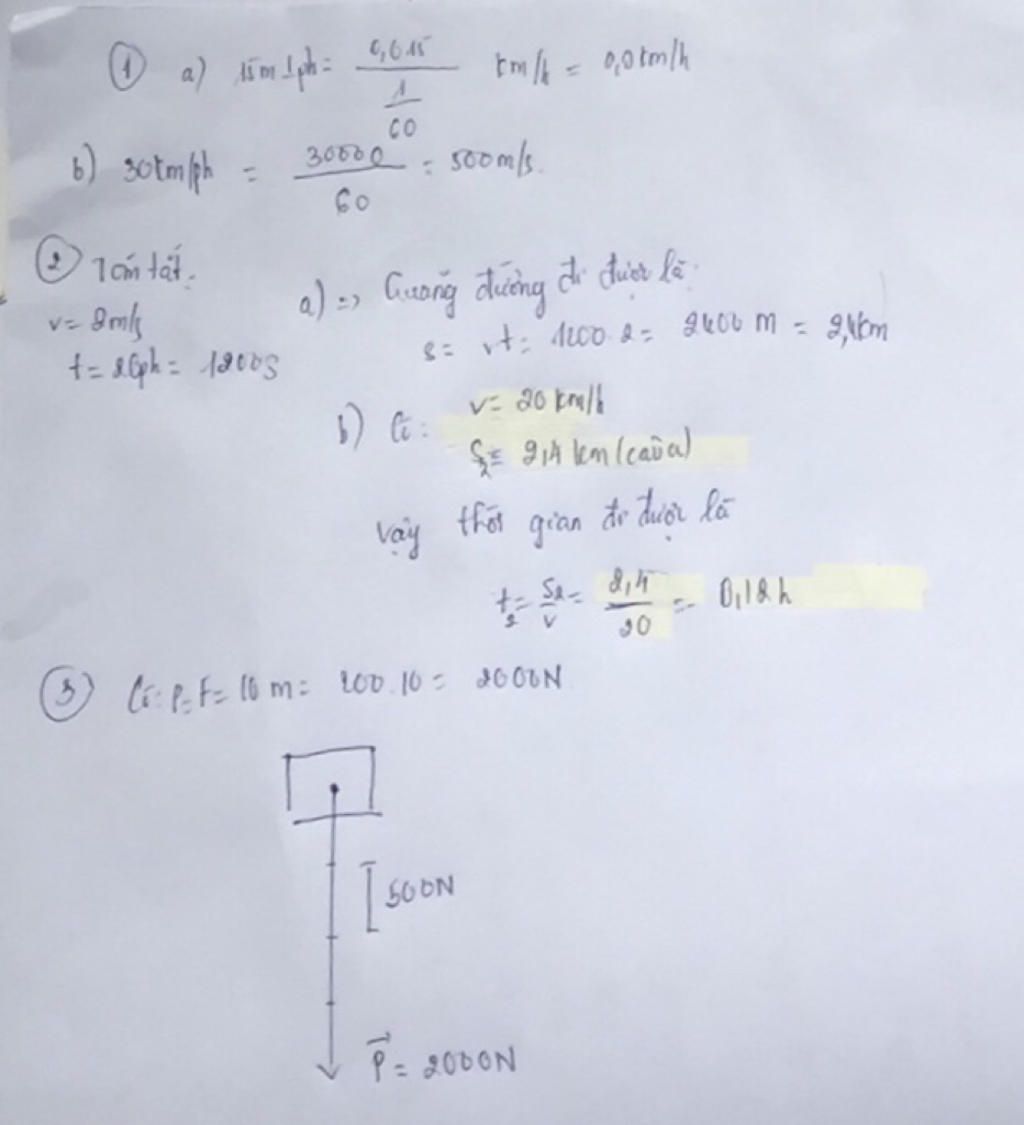 ① a) 15m/ph = 0,015 / (1/60) km/h = 0,9km/h
b) 30km/ph = 30000/60 = 500m/s.
② Tóm tắt:
v = 2m/s
t = 20ph = 1200s
a) => Quãng đường đi được là:
s = vt = 1200.2 = 2400 m = 2,4km
b) Có: v = 20 km/h
S₂ = 2,4 km (câu a)
Vậy thời gian đi được là
t₂ = S₂/v = 2,4/20 = 0,12h
③ Có: P = F = 10 m = 200.10 = 2000N
500N
P⃗ = 2000N